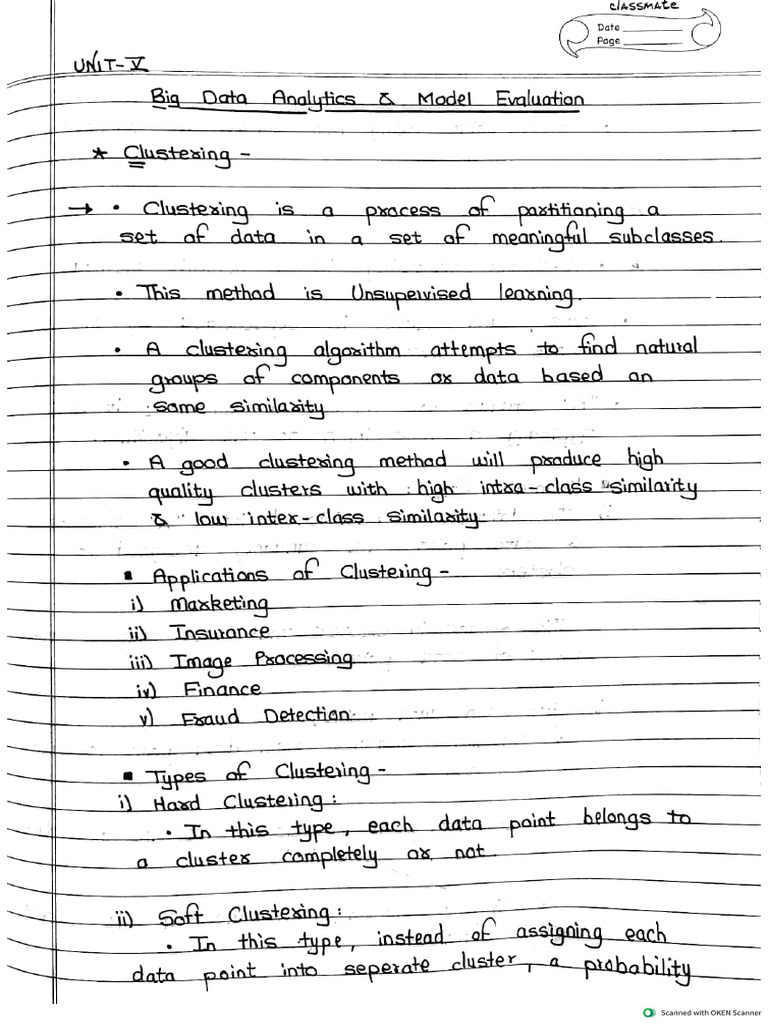 classmate
Date
Page
UNIT-V
Big Data Analytics & Model Evaluation
* Clustering -
→ • Clustering is a process of partitioning a
set of data in a set of meaningful subclasses.
• This method is Unsupervised learning.
• A clustering algorithm attempts to find natural
groups of components or data based on
some similarity
• A good clustering method will produce high
quality clusters with high intra-class similarity
& low inter-class similarity.
▪ Applications of Clustering -
i) Marketing
ii) Insurance
iii) Image Processing
iv) Finance
v) Fraud Detection.
▪ Types of Clustering -
i) Hard Clustering :
• In this type, each data point belongs to
a cluster completely or not.
ii) Soft Clustering :
• In this type, instead of assigning each
data point into seperate cluster, a probability
Scanned with OKEN Scanner